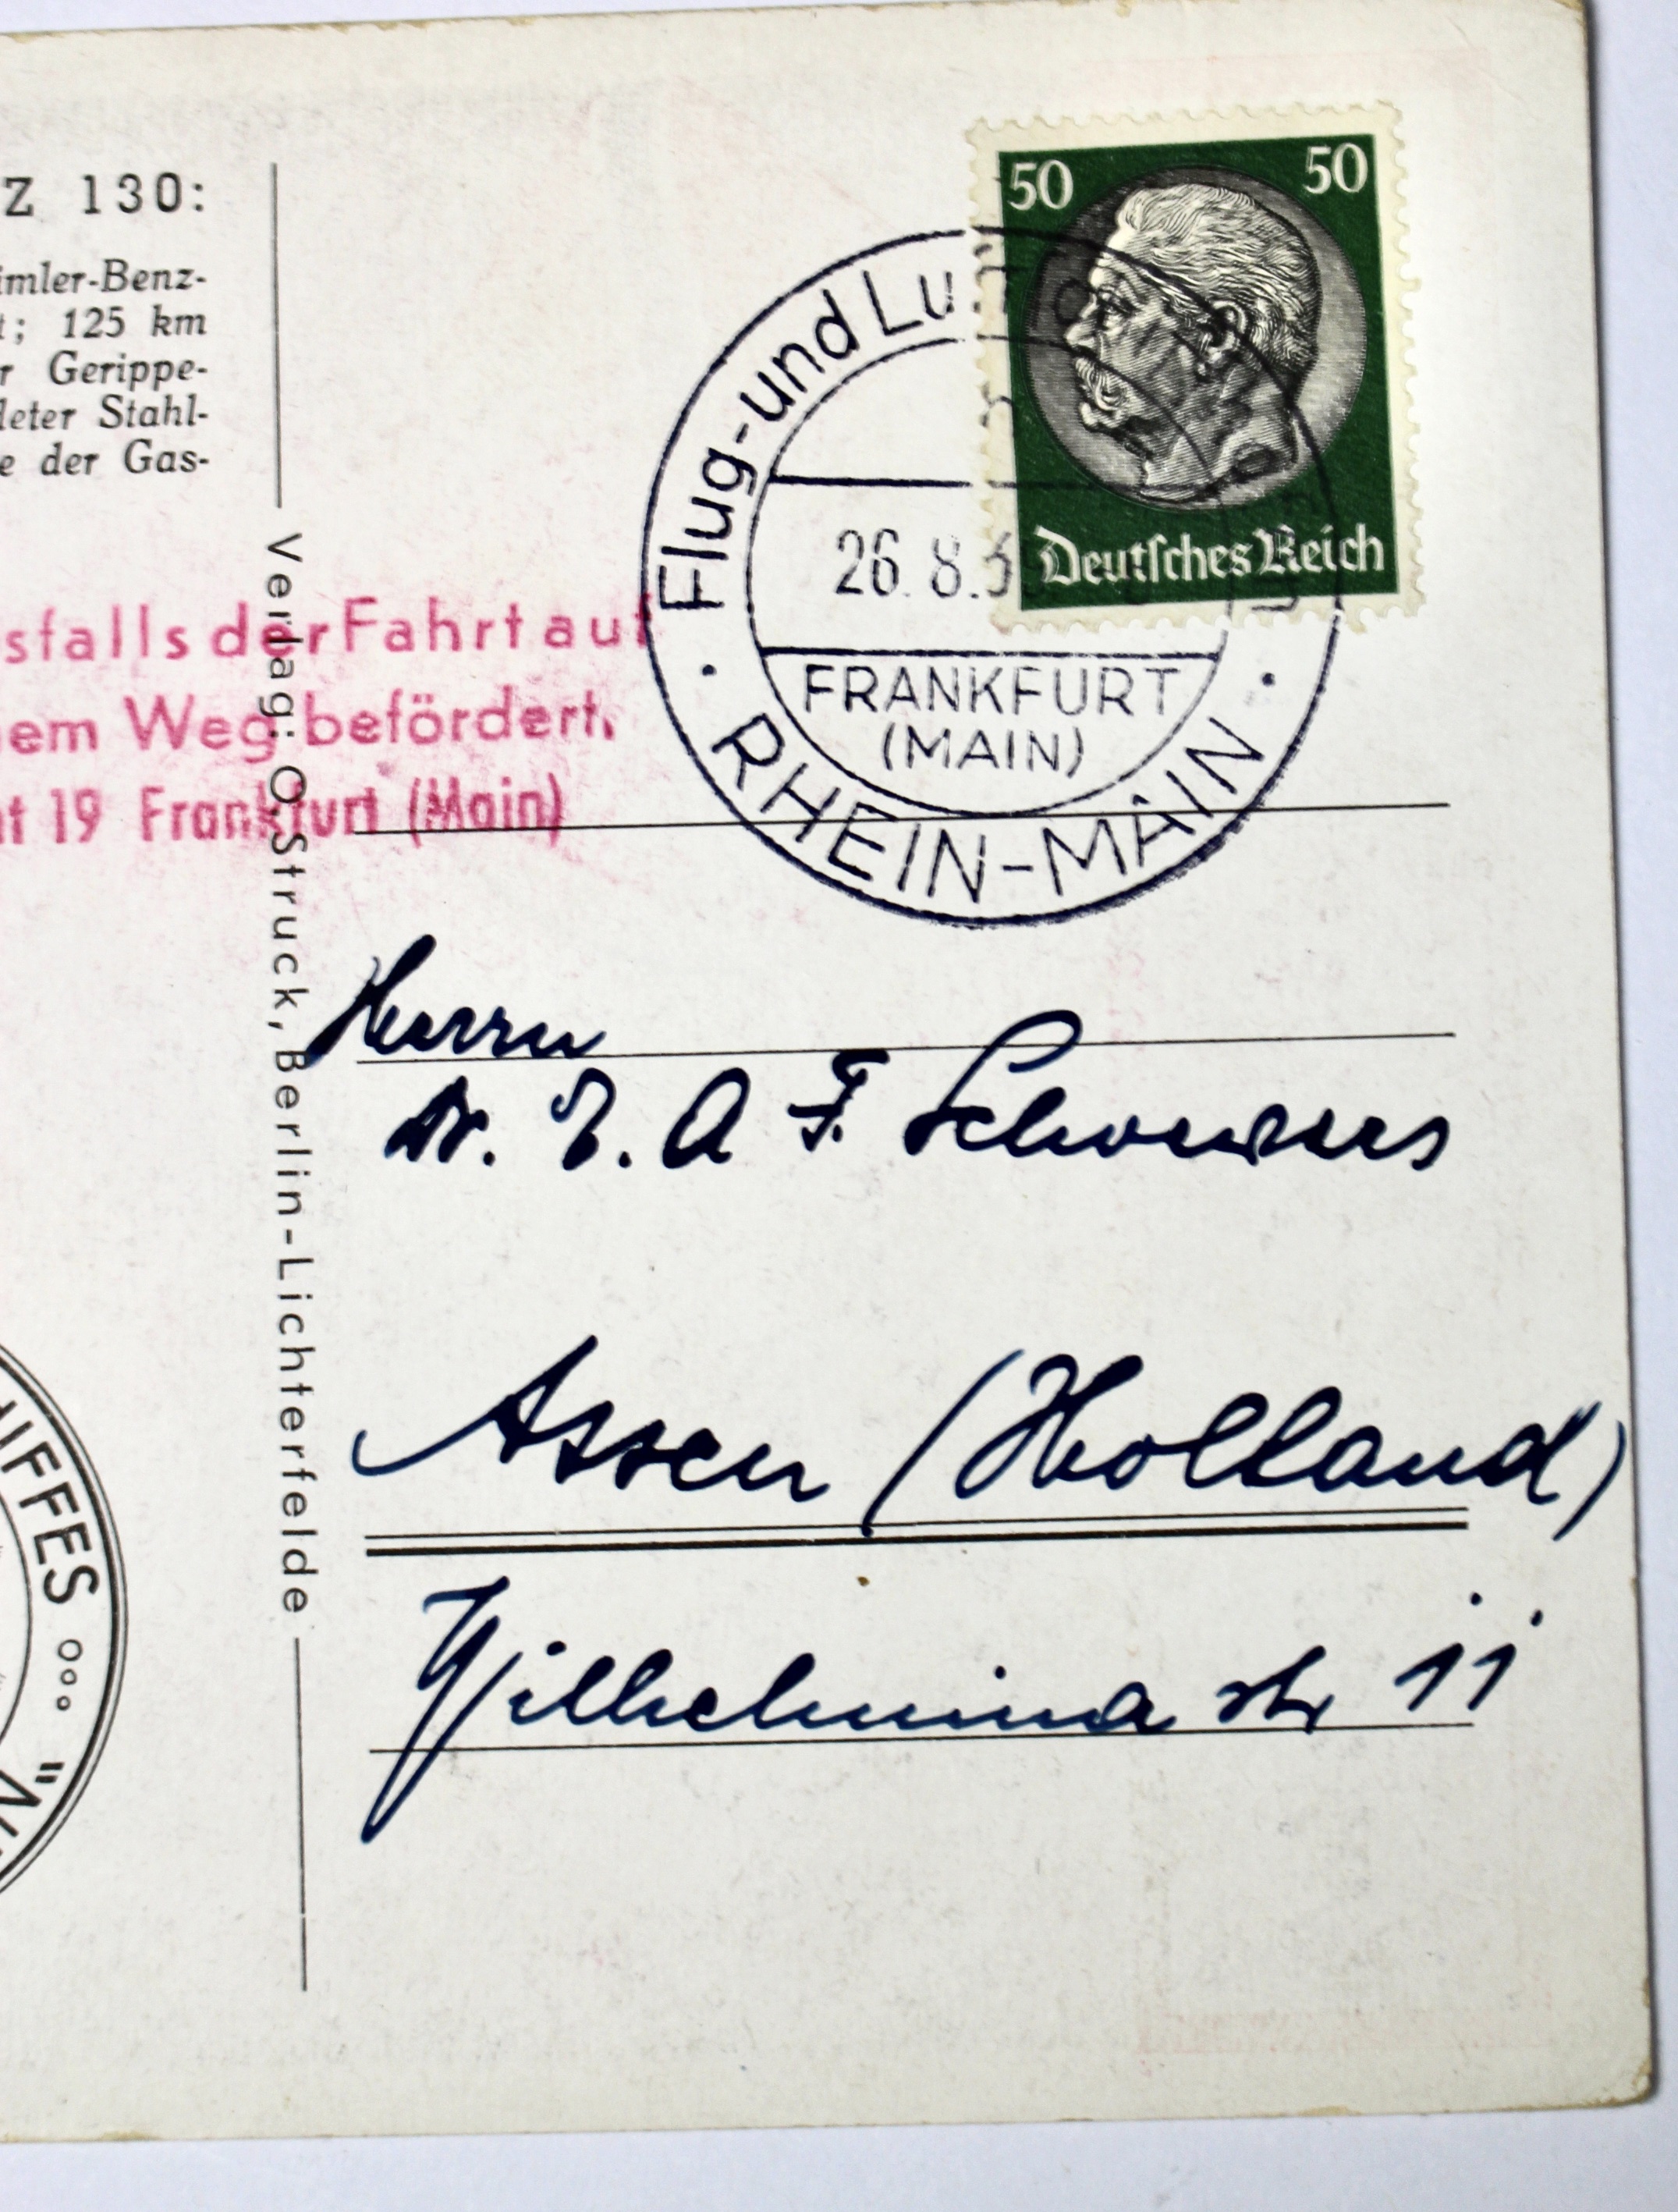 Z 130:
imler-Benz-
t; 125 km
r Gerippe-
leter Stahl-
e der Gas-
Verlag: O. Struck, Berlin-Lichterfelde
sfalls der Fahrt auf
em Weg befördert.
t 19 Frankfurt (Main)
50 50
Deutsches Reich
Flug-und Lu
26.8.39
FRANKFURT
(MAIN)
RHEIN-MAIN
HIFFES
Herrn
Dr. E. A F. Schouwers
Assen (Holland)
Wilhelmina str 11